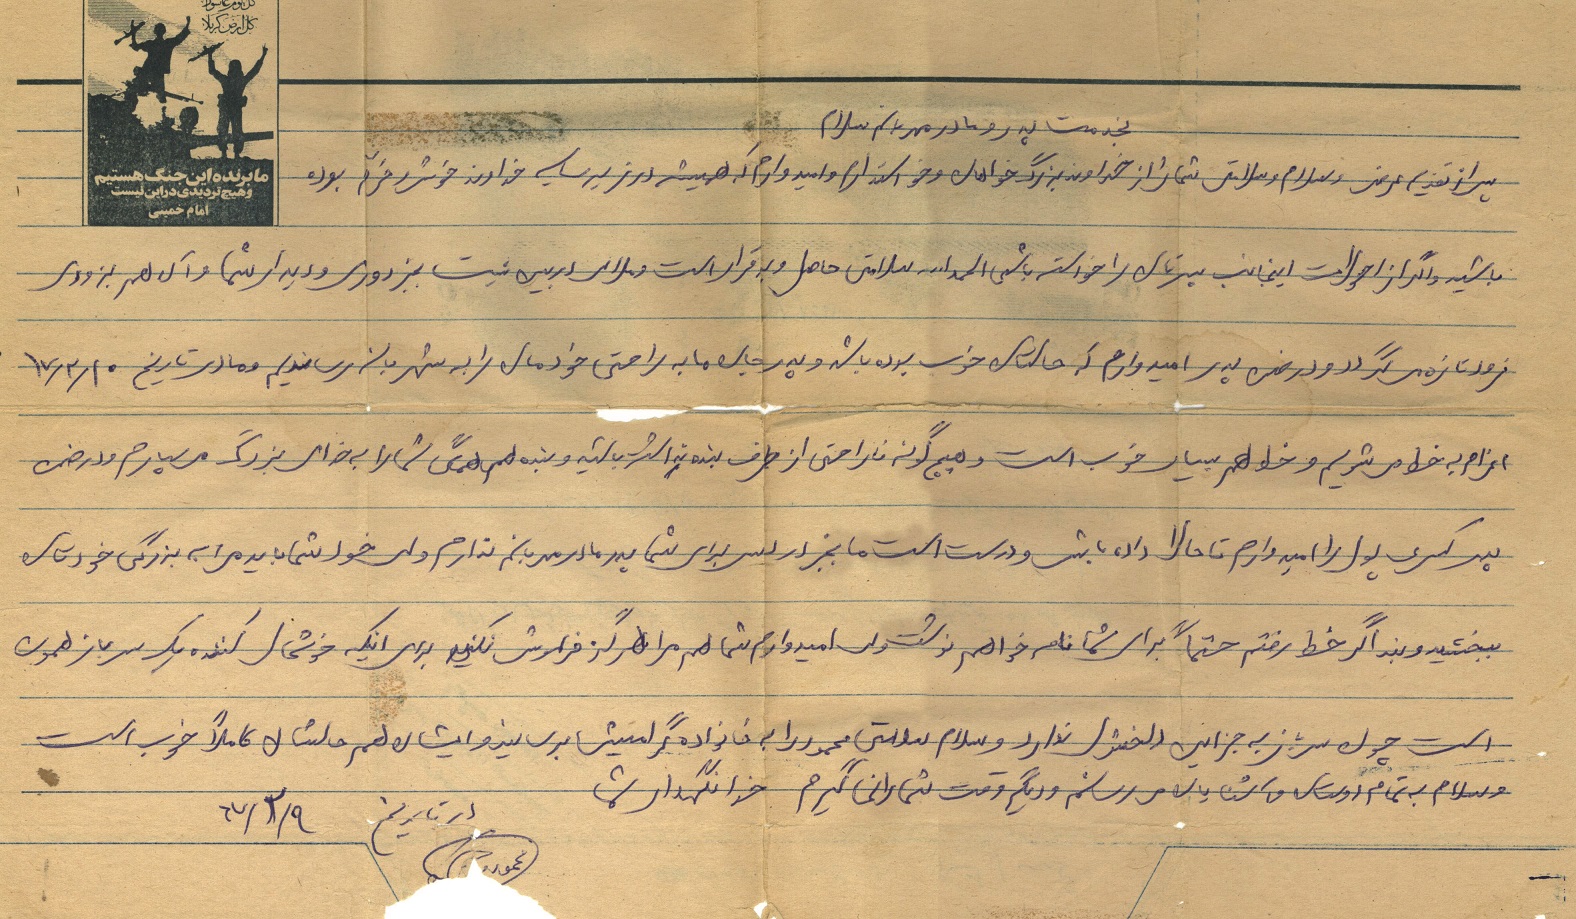 کل یوم عاشورا
کل ارض کربلا
ما برنده این جنگ هستیم
و هیچ تردیدی در این نیست
امام خمینی
بخدمت پدر و مادر مهربانم سلام
پس از تقدیم عرض و سلام و سلامتی شما را از خداوند بزرگ خواهان و خواستارم و امیدوارم که همیشه در زیر سایه خداوند خوش و خرم بوده
باشید و اگر از احوالات اینجانب پسرتان را خواسته باشی الحمدالله سلامتی حاصل و برقرار است و ملالی در بین نیست بجز دوری و دیدار شما و آن هم بزودی
زود تازه می گردد و در ضمن پدر امیدوارم که حالتان خوب بوده باشد و پدر جان ما به راحتی خودمان را به شهر بانه رساندیم و ما در تاریخ ۶۷/۳/۱۰
اعزام به خط می شویم و خط هم بسیار خوب است و هیچ گونه ناراحتی از طرف بنده نداشته باشید و بنده هم همگی شما را به خدای بزرگ می سپارم و در ضمن
پدر کسری پول را امیدوارم تا حالا داده باشی و درست است ما بجز دردسر برای شما پدر مادر مهربانم ندارم ولی خود شما باید مرا به بزرگی خودتان
ببخشید و بنده اگر خط رفتم حتماً برای شما نامه خواهم نوشت ولی امیدوارم شما هم مرا هرگز فراموش نکنید برای اینکه خوشحال کننده یک سرباز همین
است چون سرباز به جز این دلخوشی ندارد و سلام سلامتی محمود را به خانواده گرامیش برسانید و ایشان هم حالشان کاملاً خوب است
و سلام به تمام دوستان و آشنایان می رسانم و دیگر وقت شما را نمی گیرم خدا نگهدار شما
در تاریخ ۶۷/۳/۹